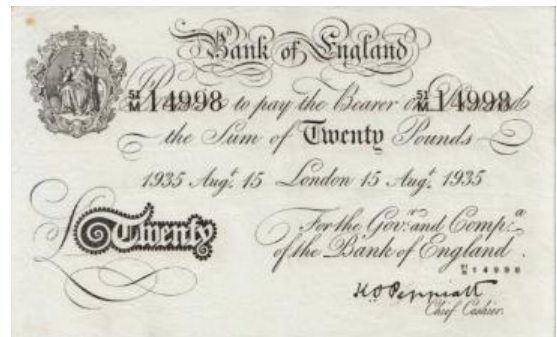 Bank of England
I Promise to pay the Bearer on Demand
51/M 14998 51/M 14998
the Sum of Twenty Pounds
1935 Augt. 15 London 15 Augt. 1935
For the Govr. and Compa.
of the Bank of England.
51/M 14998
£Twenty
K O Peppiatt
Chief Cashier.